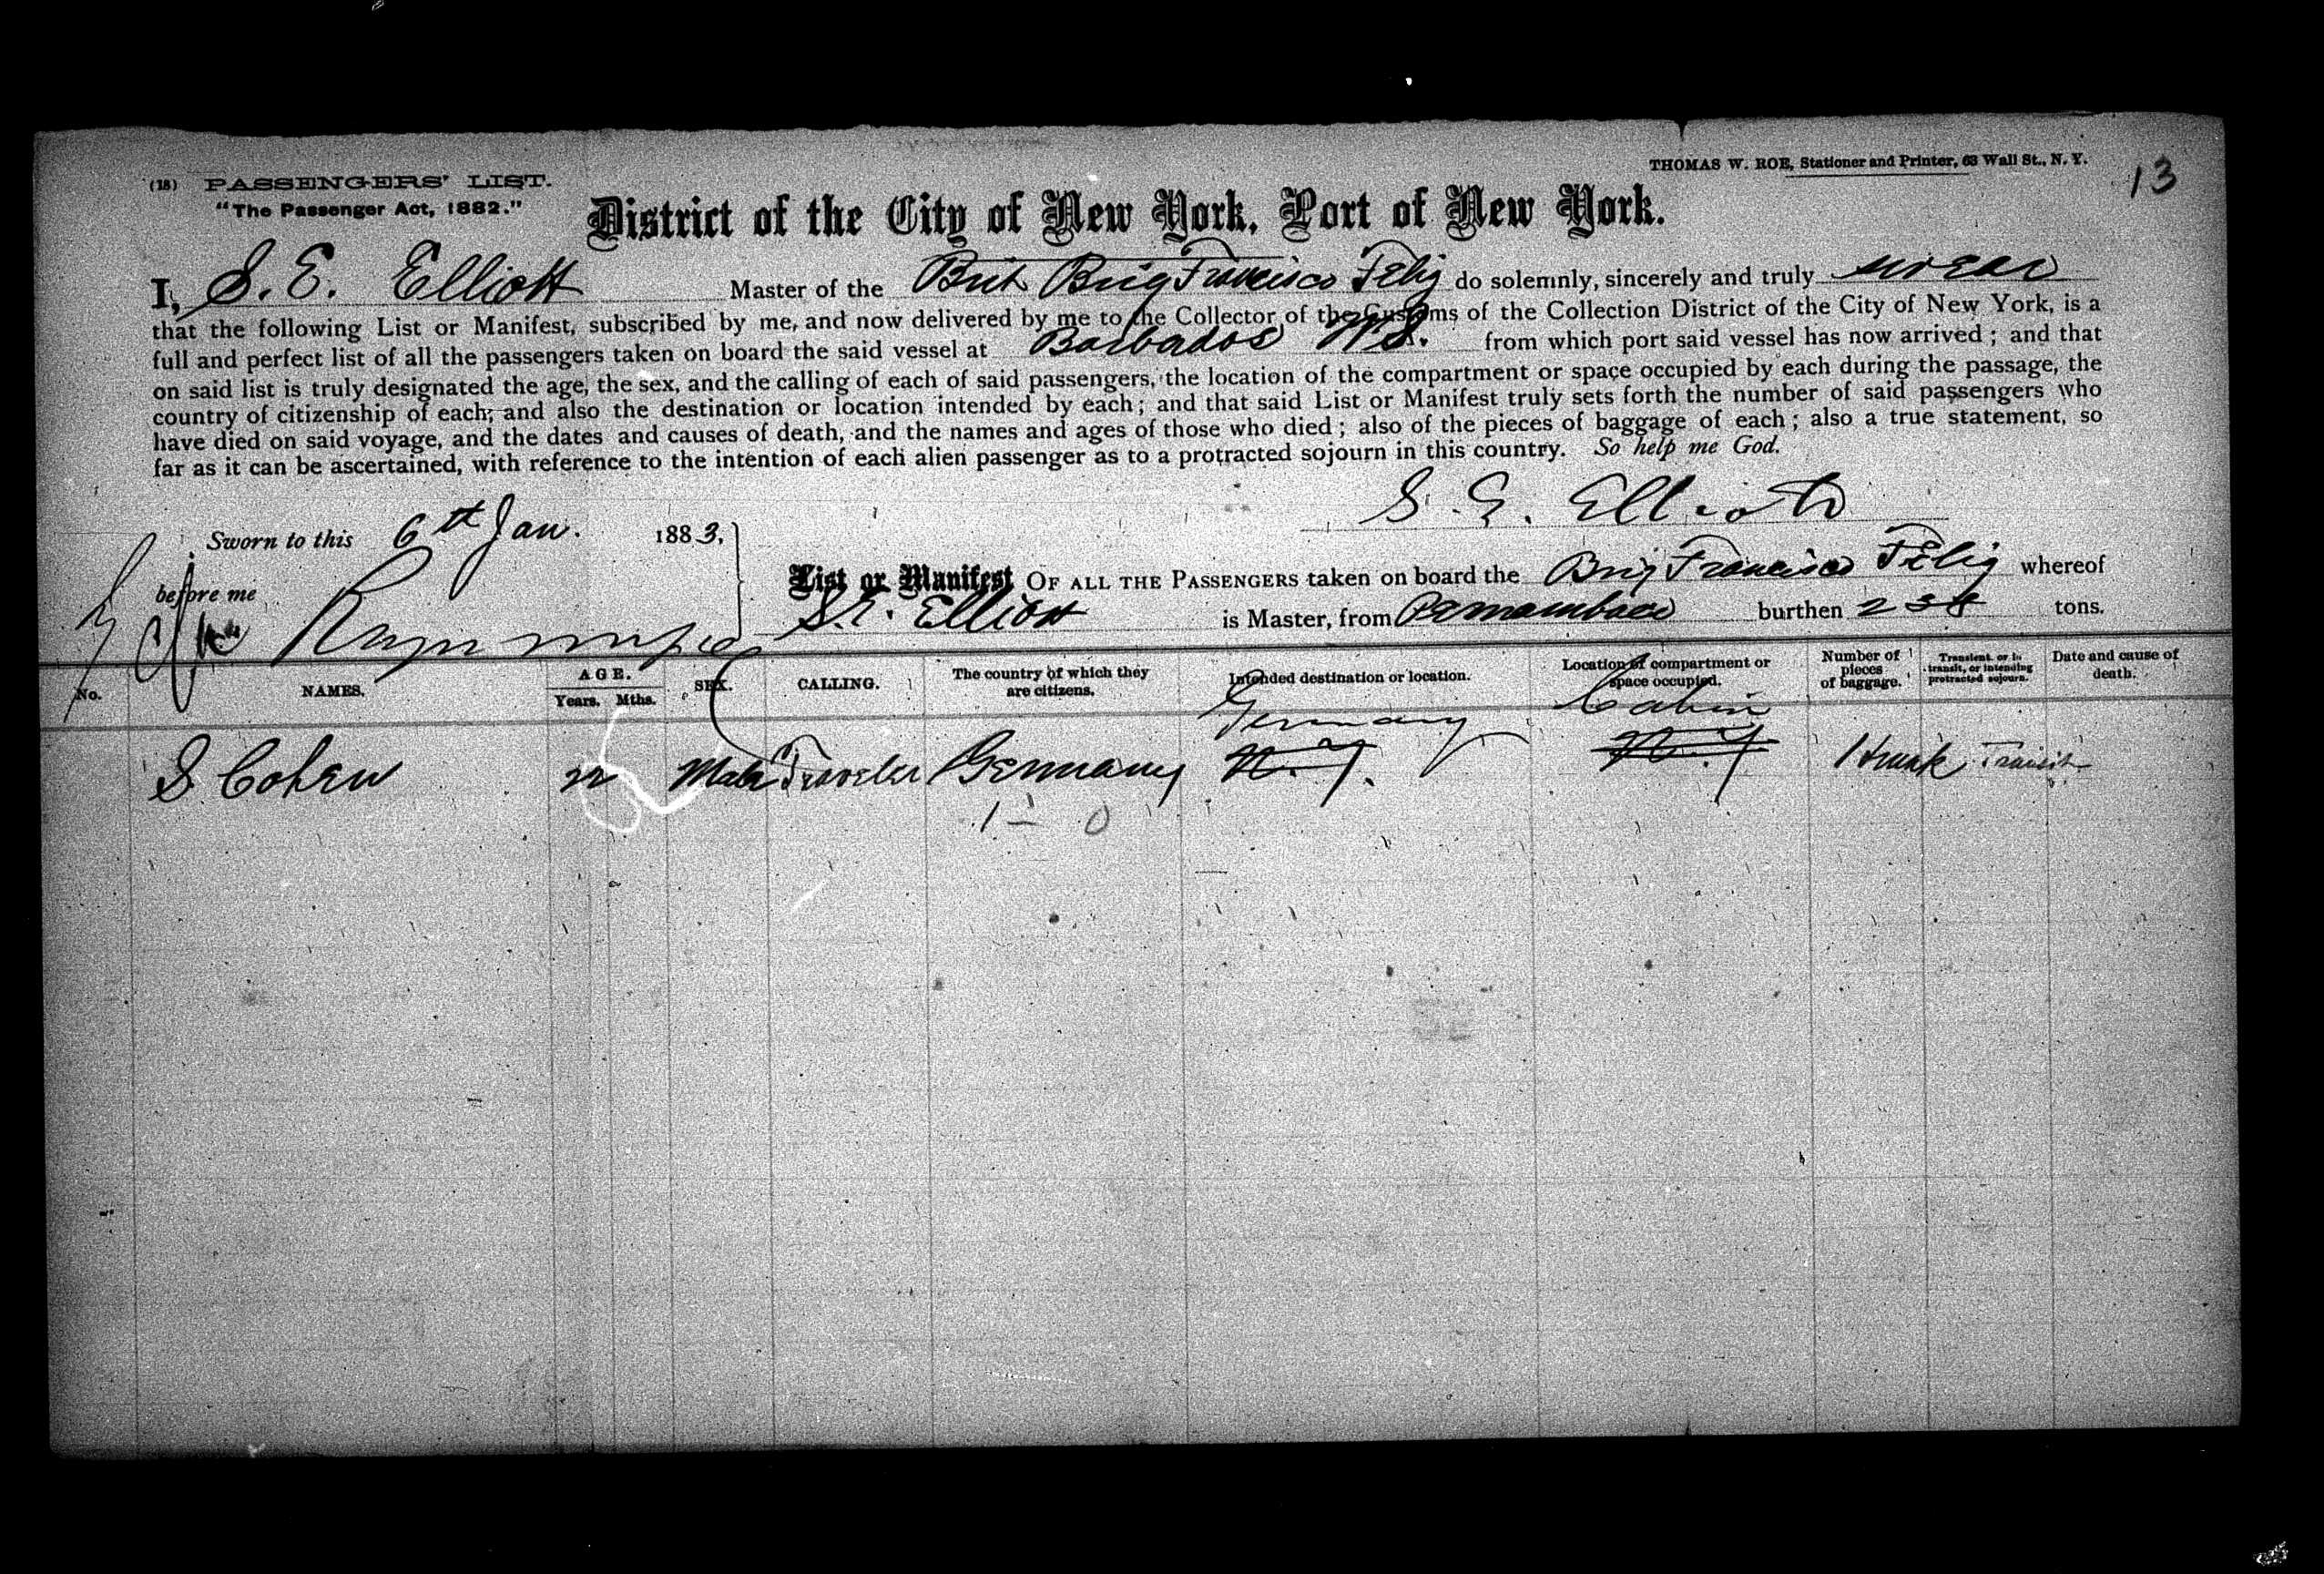 (18) PASSENGERS' LIST.
"The Passenger Act, 1882."
THOMAS W. ROE, Stationer and Printer, 63 Wall St., N. Y.
13
District of the City of New York, Port of New York.
I, S. E. Elliott Master of the Brit Brig Francisco Feliz do solemnly, sincerely and truly swear
that the following List or Manifest, subscribed by me, and now delivered by me to the Collector of the Customs of the Collection District of the City of New York, is a
full and perfect list of all the passengers taken on board the said vessel at Barbados W.I. from which port said vessel has now arrived; and that
on said list is truly designated the age, the sex, and the calling of each of said passengers, the location of the compartment or space occupied by each during the passage, the
country of citizenship of each; and also the destination or location intended by each; and that said List or Manifest truly sets forth the number of said passengers who
have died on said voyage, and the dates and causes of death, and the names and ages of those who died; also of the pieces of baggage of each; also a true statement, so
far as it can be ascertained, with reference to the intention of each alien passenger as to a protracted sojourn in this country. So help me God.
S. E. Elliott
Sworn to this 6th Jan. 1883,
before me
List or Manifest OF ALL THE PASSENGERS taken on board the Brig Francisco Feliz whereof
S. E. Elliott is Master, from Pernambuco burthen 238 tons.
No. NAMES. AGE. Years. Mths. SEX. CALLING. The country of which they are citizens. Intended destination or location. Location of compartment or space occupied. Number of pieces of baggage. Transient, or in transit, or intending protracted sojourn. Date and cause of death.
Germany Cabin
S. Cohen 22 Male Traveler Germany N.Y. N.Y. 1 trunk Transit
1 - 0